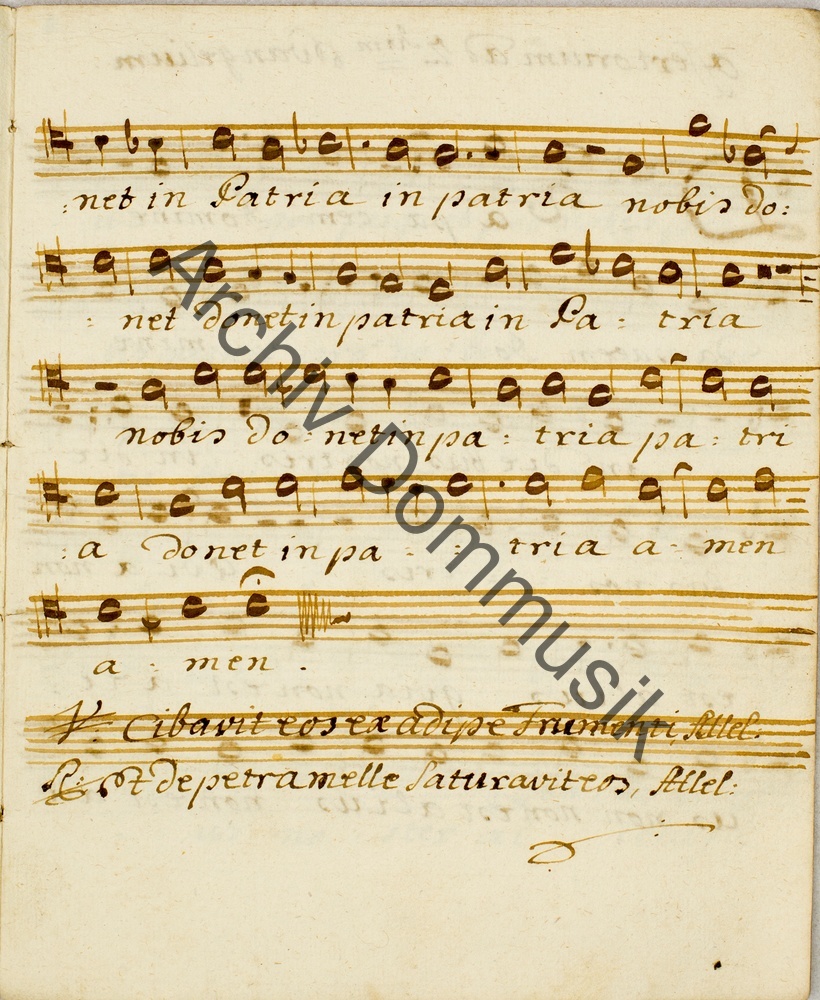 :net in Patria in patria nobis do:
: net donet in patria in Pa : tria
nobis do : net in pa : tria pa : tri
: a donet in pa : : tria a : men
a : men .
V. Cibavit eos ex adipe Frumenti, Allel:
R: Et de petra melle Saturavit eos, Allel:
Archiv Dommusik